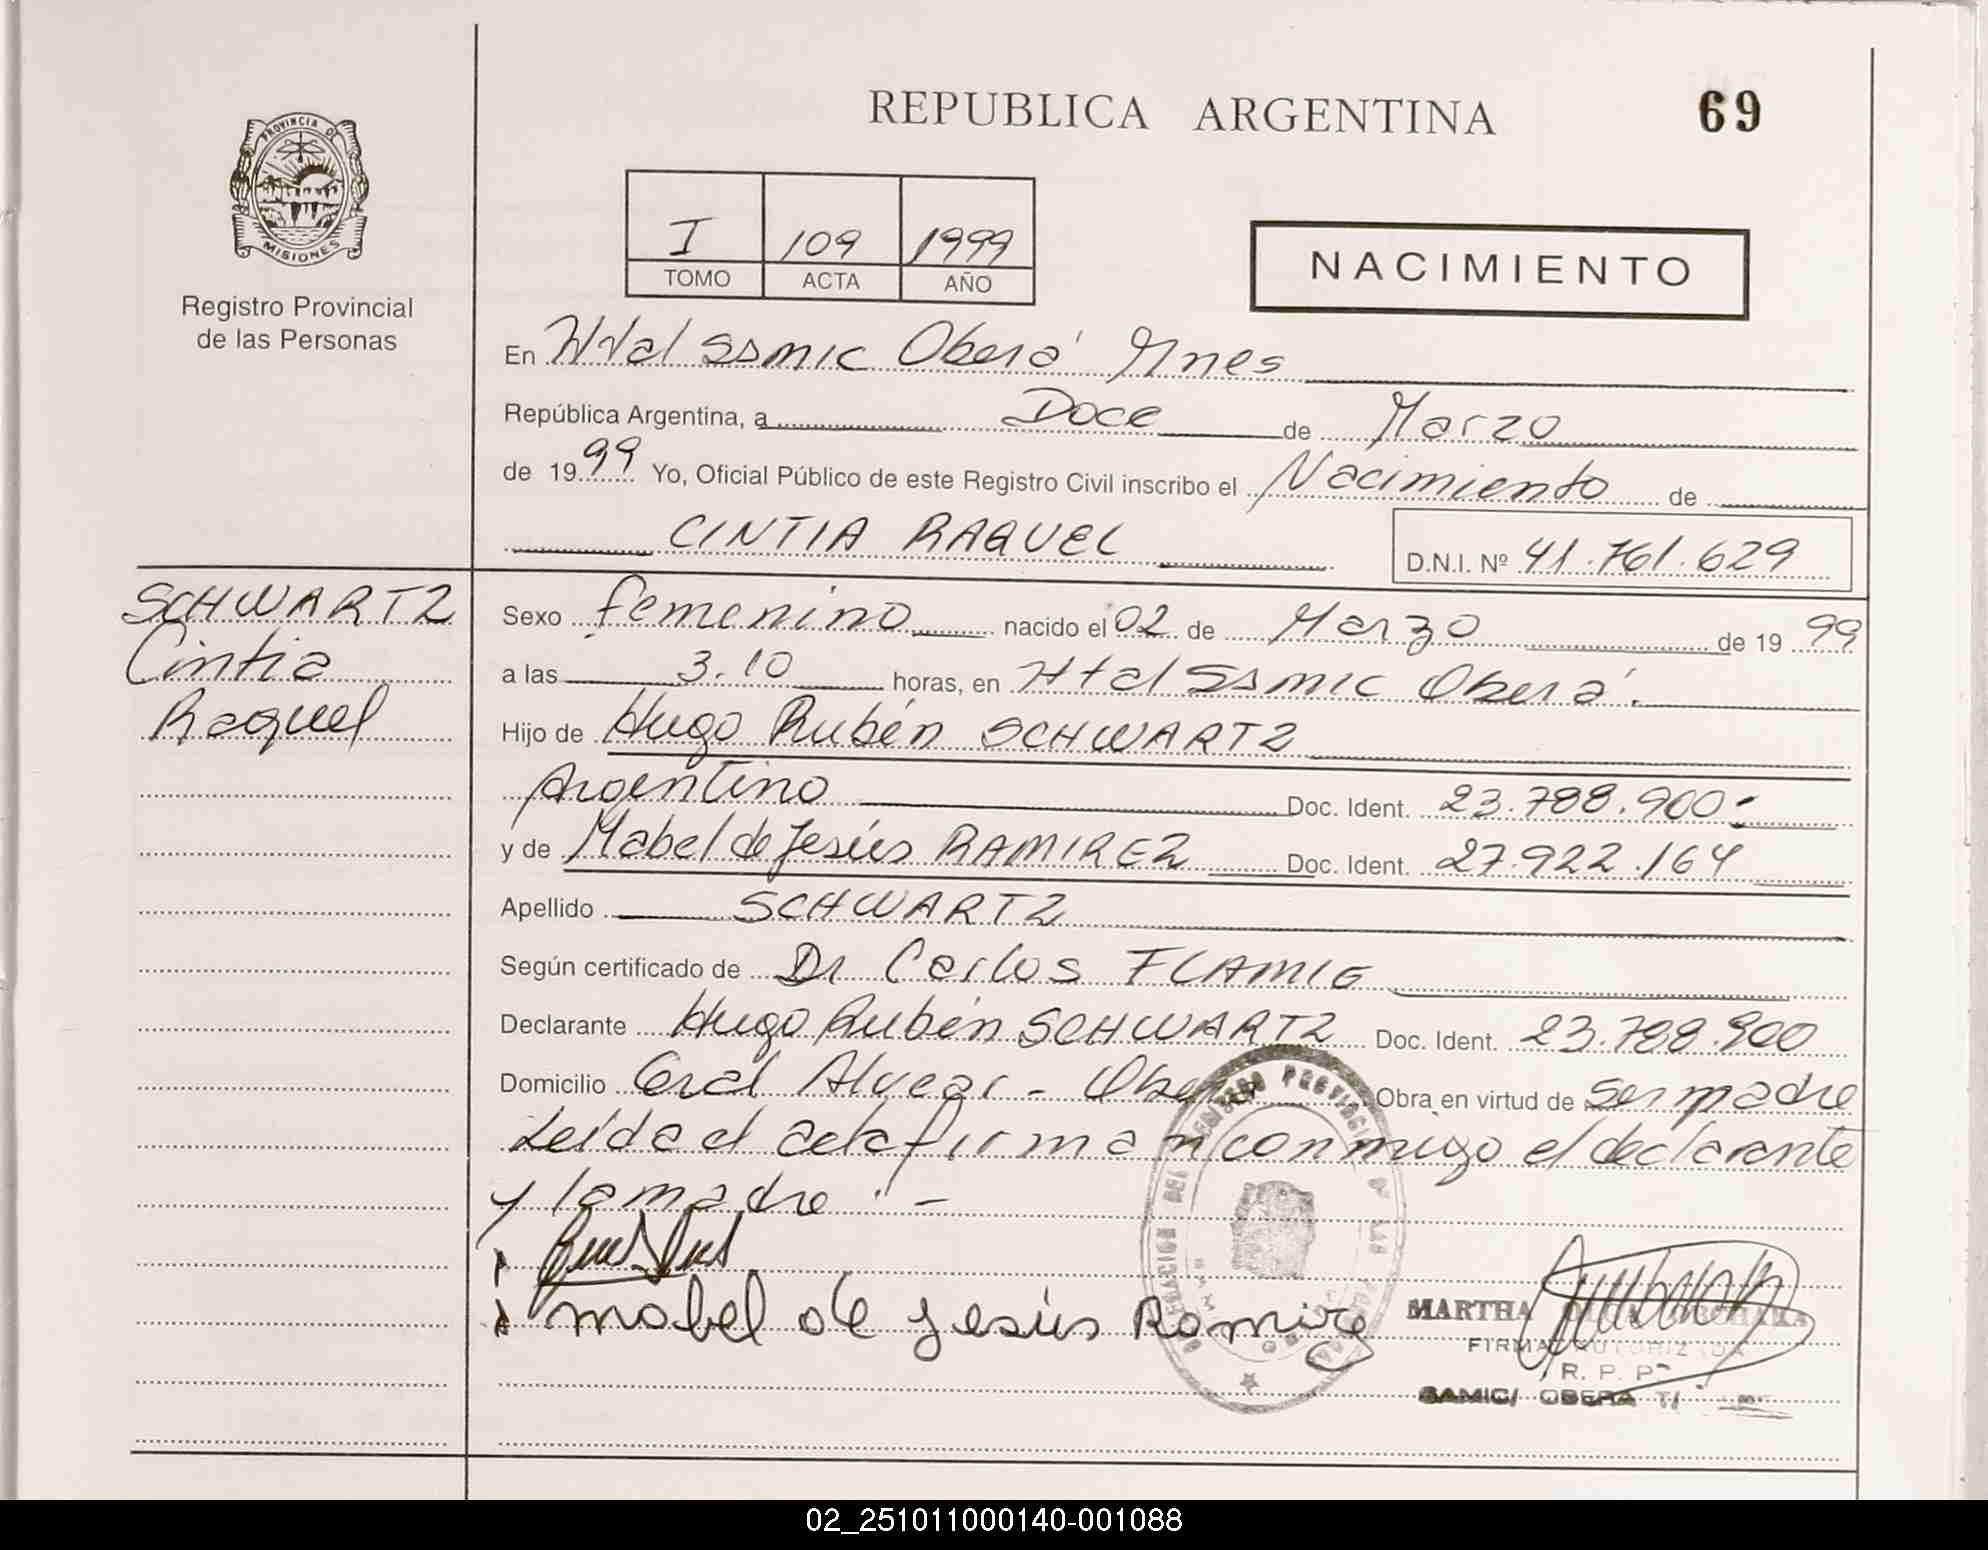 REPUBLICA ARGENTINA
69
PROVINCIA DE
MISIONES
Registro Provincial
de las Personas
I 109 1999
TOMO ACTA AÑO
NACIMIENTO
En Htal Ssmic Oberá Mnes
República Argentina, a Doce de Marzo
de 1999 Yo, Oficial Público de este Registro Civil inscribo el Nacimiento de
CINTIA RAQUEL
D.N.I. Nº 41.761.629
SCHWARTZ
Cintia
Raquel
Sexo femenino nacido el 02 de Marzo de 1999
a las 3.10 horas, en Htal Ssmic Oberá.
Hijo de Hugo Rubén SCHWARTZ
Argentino Doc. Ident. 23.788.900
y de Mabel de Jesús RAMIREZ Doc. Ident. 27.922.164
Apellido SCHWARTZ
Según certificado de Dr Carlos FLAMIG
Declarante Hugo Rubén SCHWARTZ Doc. Ident. 23.788.900
Domicilio Gral Alvear - Obra en virtud de ser madre
Leída el acta firman conmigo el declarante
y la madre . -
mabel de Jesús Ramire
MARTHA
FIRMA AUTORIZADA
R. P. P.
SAMIC/ OBERA
02_251011000140-001088